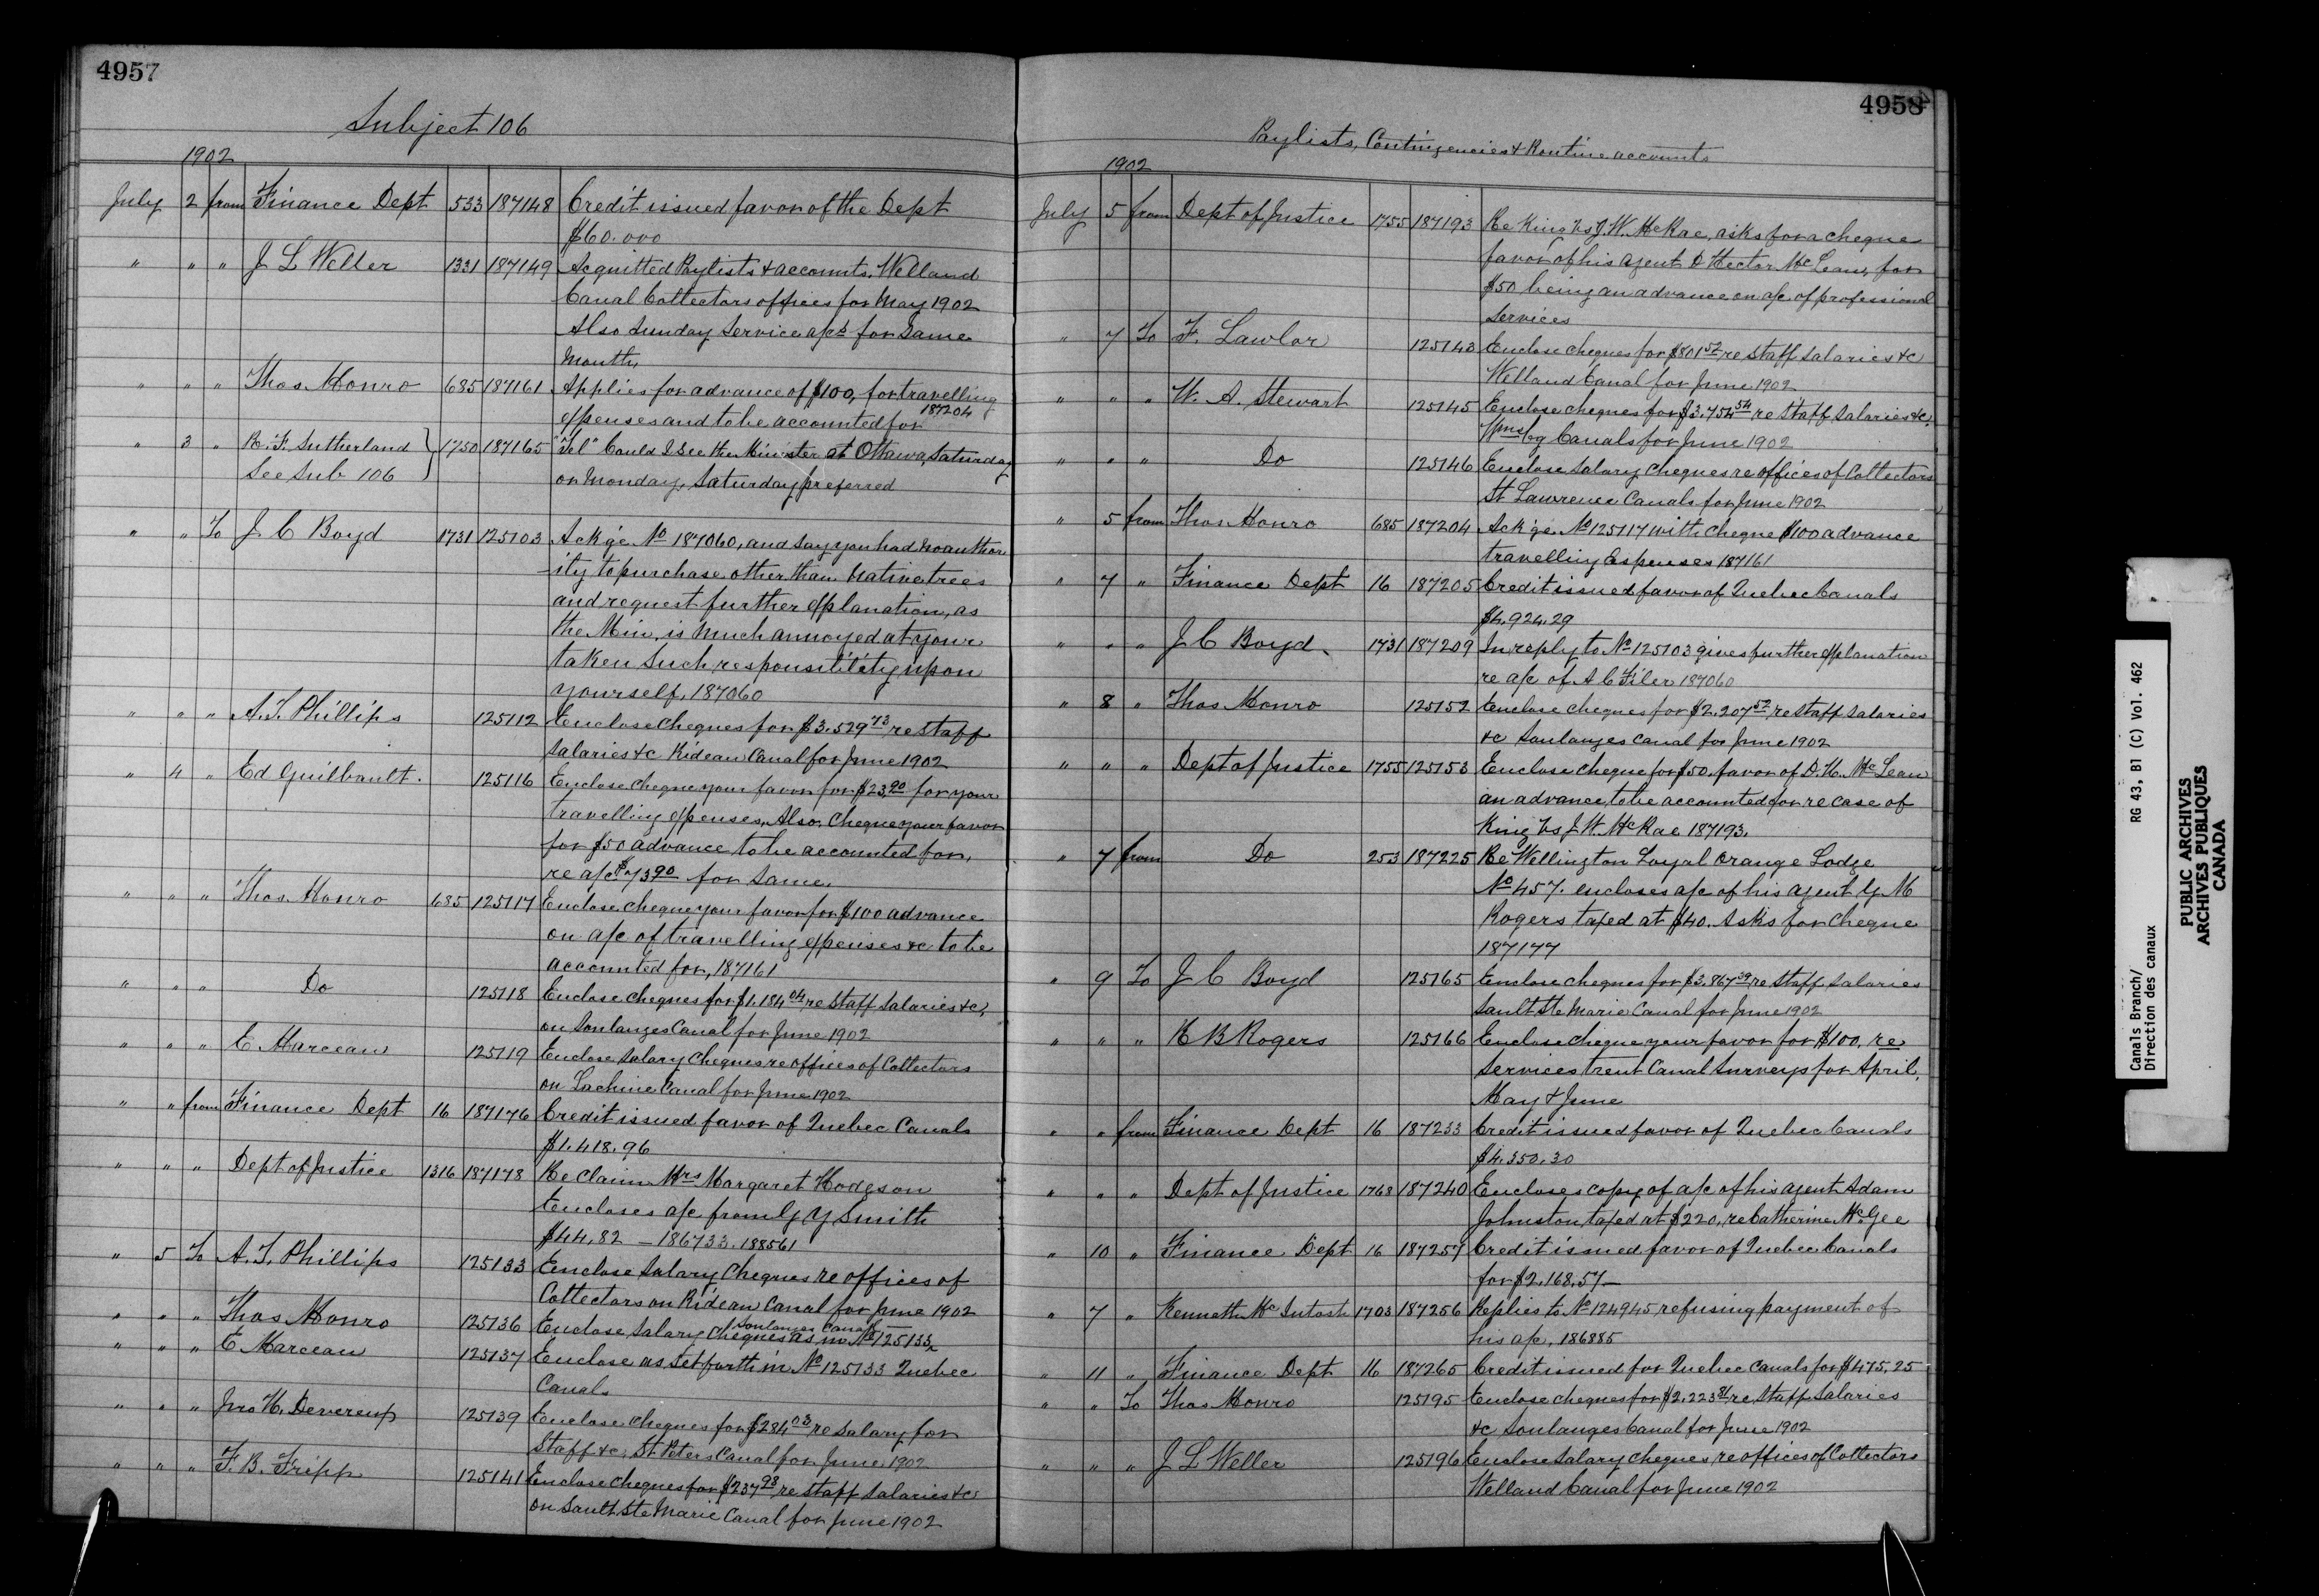 4957
Subject 106
1902
July 2 from Finance Dept 533 187148 Credit issued favor of the Dept
$60.000
" " " J L Weller 1331 187149 Acquitted Paylists & accounts, Welland
Canal Collectors offices for May 1902
Also Sunday Service a/cs for Same
Month
" " " Thos Monro 685 187161 Applies for advance of $100, for travelling
expenses and to be accounted for 187204
" 3 " R. F. Sutherland } 1750 187165 "Tel" Could I see the Minister at Ottawa, Saturday
See Sub 106 or Monday, Saturday preferred
" " To J C Boyd 1731 125103 Ackge No 187060, and say you had no author
-ity to purchase other than native trees
and request further explanation, as
the Min, is much annoyed at your
taken such responsibility upon
yourself, 187060
" " " A. T. Phillips 125112 Enclose cheques for $3.529 73 re staff
salaries &c Rideau Canal for June 1902
" 4 " Ed Guilbault. 125116 Enclose cheque your favor for $23.90 for your
travelling expenses, Also, cheque your favor
for $50 advance to be accounted for,
re a/c $73.90 for same
" " " Thos Monro 685 125117 Enclose cheque your favor for $100 advance
on a/c of travelling expenses &c to be
accounted for, 187161
" " " Do 125118 Enclose cheques for $1.184 04 re staff salaries &c,
on Soulanges Canal for June 1902
" " " E Marceau 125119 Enclose salary cheques re offices of Collectors
on Lachine Canal for June 1902
" " from Finance Dept 16 187176 Credit issued favor of Quebec Canals
$1.418.96
" " " Dept of Justice 1316 187178 Re Claim Mrs Margaret Hodgson
Encloses a/c from G Y Smith
$44.82 – 186733. 188561
" 5 To A. T. Phillips 125133 Enclose Salary Cheques re offices of
Collectors on Rideau Canal for June 1902
Soulanges Canal
" " " Thos Monro 125136 Enclose Salary cheques as in No 125133,
" " " E Marceau 125137 Enclose as set forth in No 125133 Quebec
Canals
" " " Jno H. Devereux 125139 Enclose cheques for $284 03 re salary for
Staff &c, St Peters Canal for June 1902
" " " F. B. Fripp 125141 Enclose cheques for $237 93 re staff salaries &c
on Sault Ste Marie Canal for June 1902
4958
Paylists, Contingencies & Routine accounts
1902
July 5 from Dept of Justice 1755 187193 Re King vs J. W. McRae, asks for a cheque
favor of his agent D Hector McLean, for
$50 being an advance on a/c of professional
services
" 7 To F. Lawlor 125143 Enclose cheques for $801 52 re staff salaries &c
Welland Canal for June 1902
" " " W. A. Stewart 125145 Enclose cheques for $3.754 54 re staff salaries &c,
Wmsbg Canals for June 1902
" " " Do 125146 Enclose salary cheques re offices of Collectors
St Lawrence Canals for June 1902
" 5 from Thos Monro 685 187204 Ackge No 125117 with cheque $100 advance
travelling expenses 187161
" 7 " Finance Dept 16 187205 Credit issued favor of Quebec Canals
$4.924.29
" " " J C Boyd. 1731 187209 In reply to No 125103 gives further explanation
re a/c of A C Filer 187060
" 8 " Thos Monro 125152 Enclose cheques for $2.207 52 re staff salaries
&c Soulanges canal for June 1902
" " " Dept of Justice 1755 125153 Enclose cheque for $50, favor of D. H. McLean
an advance, to be accounted for re case of
King vs J. W. McRae 187193.
" 7 from Do 253 187225 Re Wellington Loyal Orange Lodge
No 457. encloses a/c of his agent G M
Rogers taxed at $40. Asks for cheque
187177
" 9 To J C Boyd 125165 Enclose cheques for $3.867 39 re staff salaries
Sault Ste Marie Canal for June 1902
" " " R B Rogers 125166 Enclose cheque your favor for $100, re
services Trent Canal Surveys for April,
May & June
" " from Finance Dept 16 187233 Credit issued favor of Quebec Canals
$4.350.30
" " " Dept of Justice 1768 187240 Encloses copy of a/c of his agent Adam
Johnston, taxed at $220, re Catherine McGee
" 10 " Finance Dept 16 187257 Credit issued favor of Quebec Canals
for $2.168.57 –
" 7 " Kenneth McIntosh 1703 187256 Replies to No 124945, refusing payment of
his a/c, 186885
" 11 " Finance Dept 16 187265 Credit issued for Quebec Canals for $475,25
" " To Thos Monro 125195 Enclose cheques for $2.223 81 re staff salaries
&c Soulanges Canal for June 1902
" " " J L Weller 125196 Enclose salary cheques re offices of Collectors
Welland Canal for June 1902
Canals Branch/ RG 43, B1 (C) Vol. 462
Direction des canaux
PUBLIC ARCHIVES
ARCHIVES PUBLIQUES
CANADA